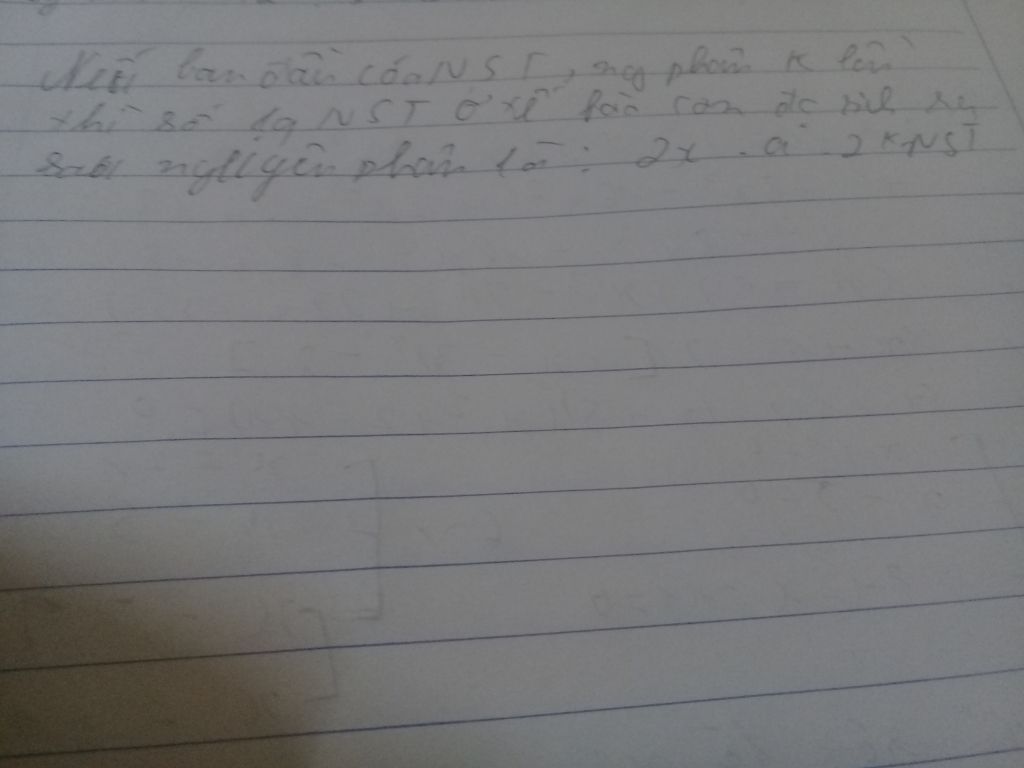 Nếu ban đầu có a NST, ng phân K lần
thì số lg NST ở tế bào con đc sinh ra
sau nguyên phân là: 2x . a . 2^K NST